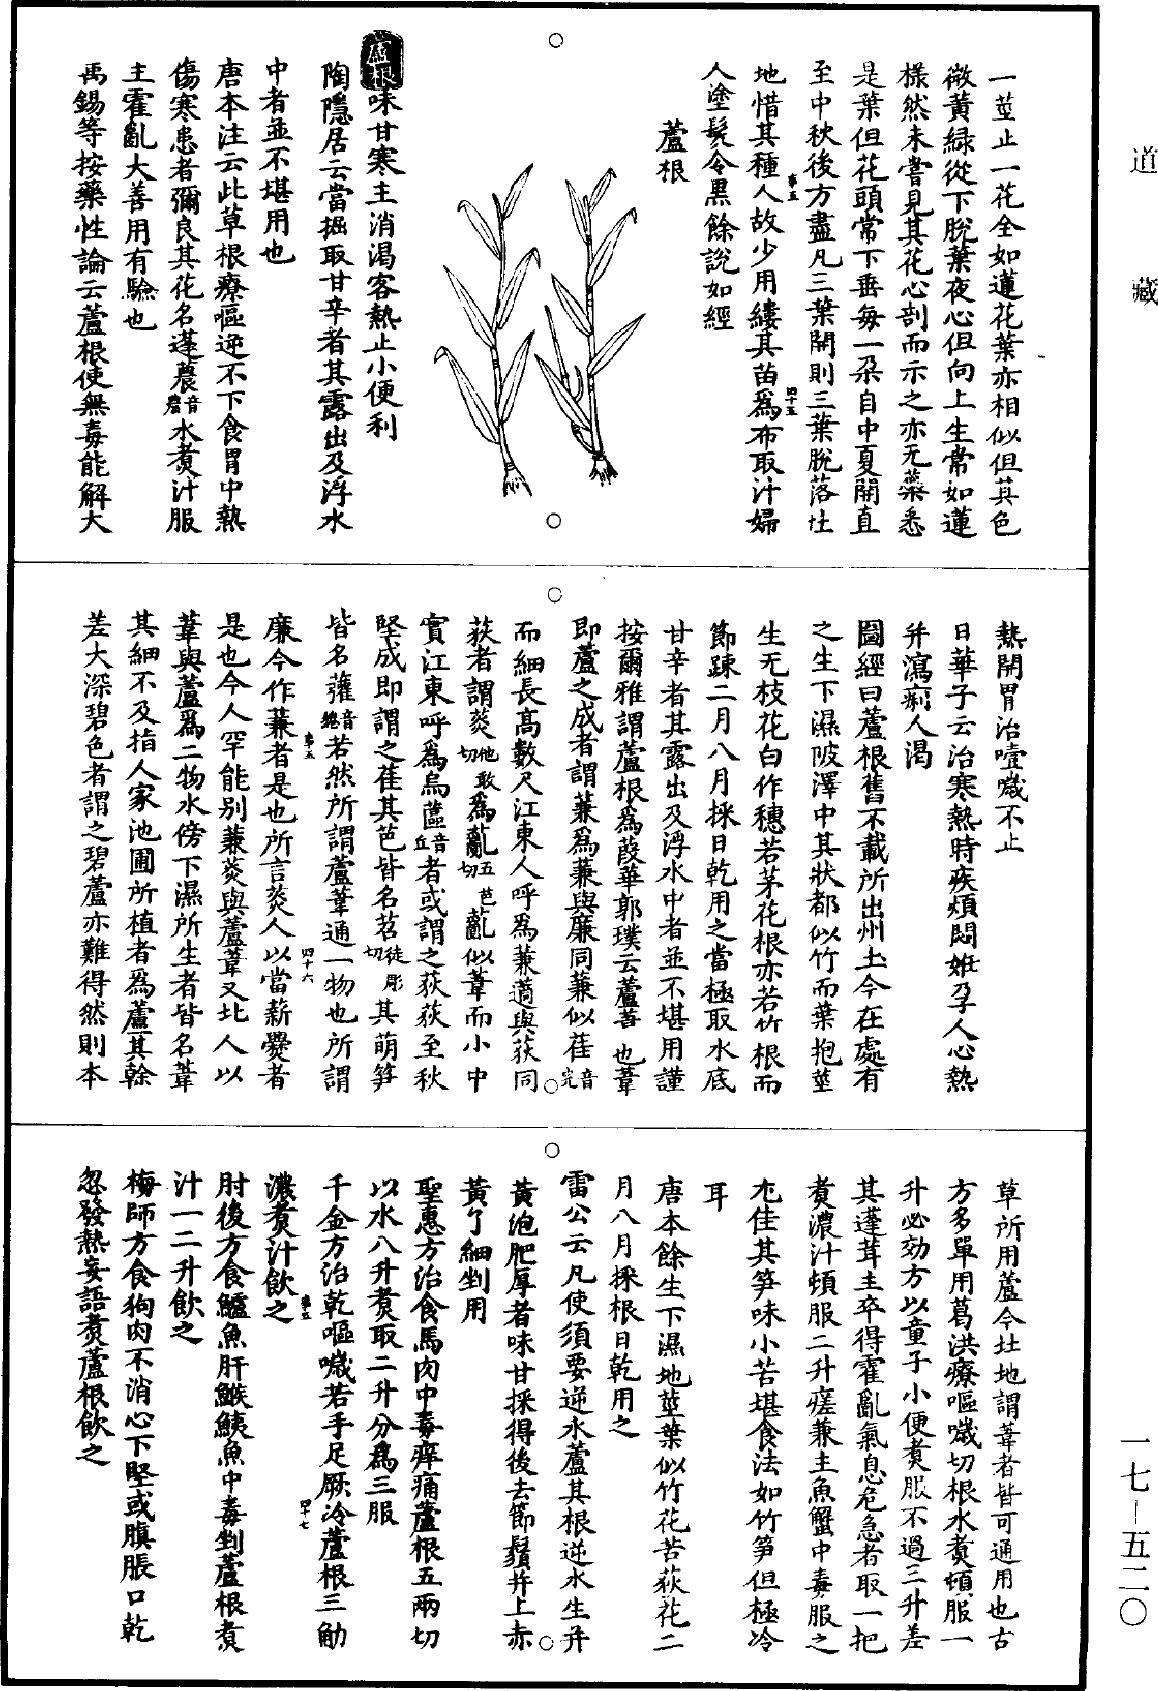 道藏
一莖止一花全如蓮花葉亦相似但其色
微黃緑從下脫葉夜心但向上生常如蓮
樣然未嘗見其花心剖而示之亦无藥悉
是葉但花頭常下垂每一朶自中夏開直
至中秋後方盡凡三葉開則三葉脫落壮
地惜其種人故少用縷其苗爲布取汁婦
人塗髮令黒餘說如經
事五
四十五
蘆根
蘆根味甘寒主消渴客熱止小便利
陶隱居云當掘取甘辛者其露出及浮水
中者並不堪用也
唐本注云此草根療嘔逆不下食胃中熱
傷寒患者彌良其花名蓬蕽音農水煮汁服
主霍亂大善用有驗也
禹錫等按藥性論云蘆根使無毒能解大
熱開胃治噎噦不止
日華子云治寒熱時疾煩悶姙孕人心熱
并瀉痢人渴
圖經曰蘆根舊不載所出州土今在處有
之生下濕陂澤中其狀都似竹而葉抱莖
生无枝花白作穗若茅花根亦若竹根而
節踈二月八月採日乾用之當極取水底
甘辛者其露出及浮水中者並不堪用謹
按爾雅謂蘆根爲葭華郭璞云蘆葦也葦
即蘆之成者謂蒹爲蒹與廉同蒹似萑音完
而細長高數尺江東人呼爲蒹藡與荻同
荻者謂菼他敢切爲薍五患切薍似葦而小中
實江東呼爲烏蓲音丘者或謂之荻荻至秋
堅成即謂之萑其芭皆名苕徒彫切其萌笋
皆名虇音綣若然所謂蘆葦通一物也所謂
廉今作蒹者是也所言菼人以當薪爨者
事五
四十六
是也今人罕能别蒹菼與蘆葦又北人以
葦與蘆爲二物水傍下濕所生者皆名葦
其細不及指人家池圃所植者爲蘆其幹
差大深碧色者謂之碧蘆亦難得然則本
草所用蘆今壮地謂葦者皆可通用也古
方多單用葛洪療嘔噦切根水煮頓服一
升必効方以童子小便煮服不過三升差
其蓬茸主卒得霍亂氣息危急者取一把
煮濃汁頓服二升瘥兼主魚蟹中毒服之
尤佳其笋味小苦堪食法如竹笋但極冷
耳
唐本餘生下濕地莖葉似竹花苦荻花二
月八月採根日乾用之
雷公云凡使須要逆水蘆其根逆水生并
黃泡肥厚者味甘採得後去節鬚并上赤
黃了細剉用
聖惠方治食馬肉中毒痒痛蘆根五兩切
以水八升煮取二升分爲三服
千金方治乾嘔噦若手足厥冷蘆根三觔
濃煮汁飲之
事五
四十七
肘後方食鱸魚肝鯸鮧魚中毒剉蘆根煮
汁一二升飲之
梅師方食狗肉不消心下堅或䐜脹口乾
忽發熱妄語煮蘆根飲之
一七—五二〇